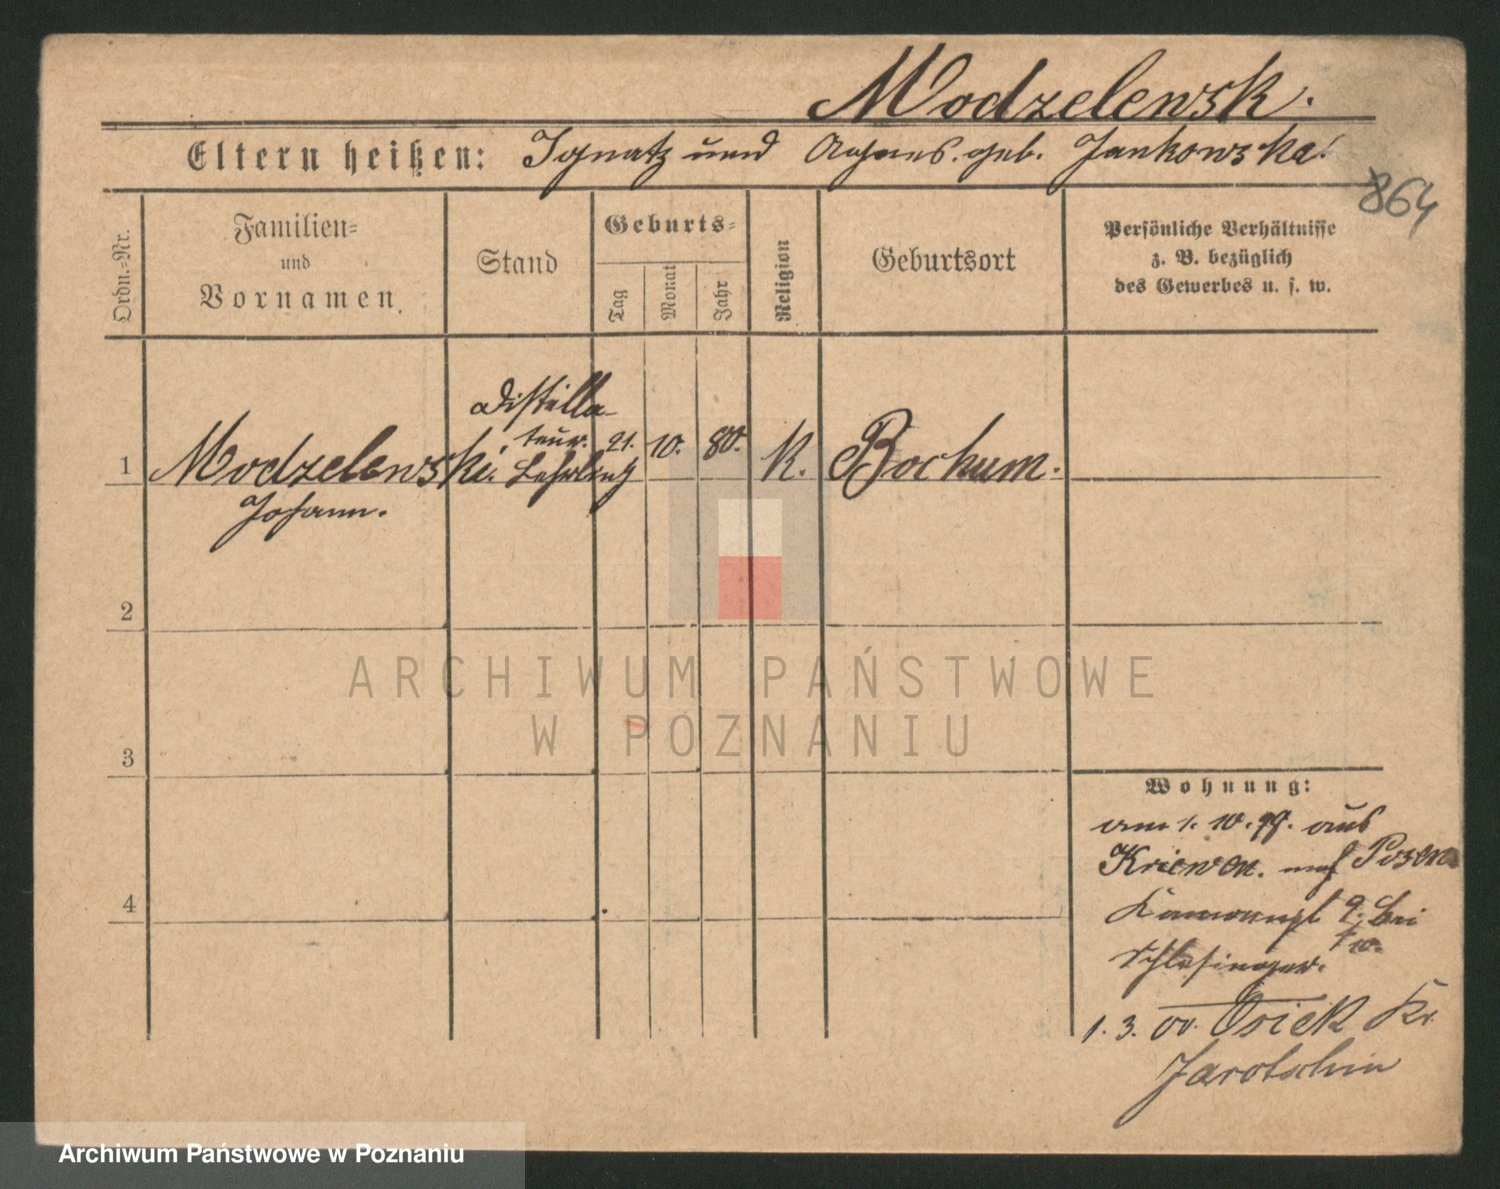 Modzelewsk.
Eltern heißen: Ignatz und Agnes. geb. Jankowska.
864
Ordn.-Nr.
Familien-
und
Vornamen.
Stand
Geburts-
Tag
Monat
Jahr
Religion
Geburtsort
Persönliche Verhältnisse
z. B. bezüglich
des Gewerbes u. s. w.
Distilla-
teur.
1 Modzelewski. Lehrling 21. 10. 80. K. Bochum.
Johann.
2
ARCHIWUM PAŃSTWOWE
W POZNANIU
3
Wohnung:
am 1. 10. 99. aus
Kriewen. nach Posen
4
9. bei
Schlesinger.
1. 3. 00. Osiek Kr.
Jarotschin
Archiwum Państwowe w Poznaniu